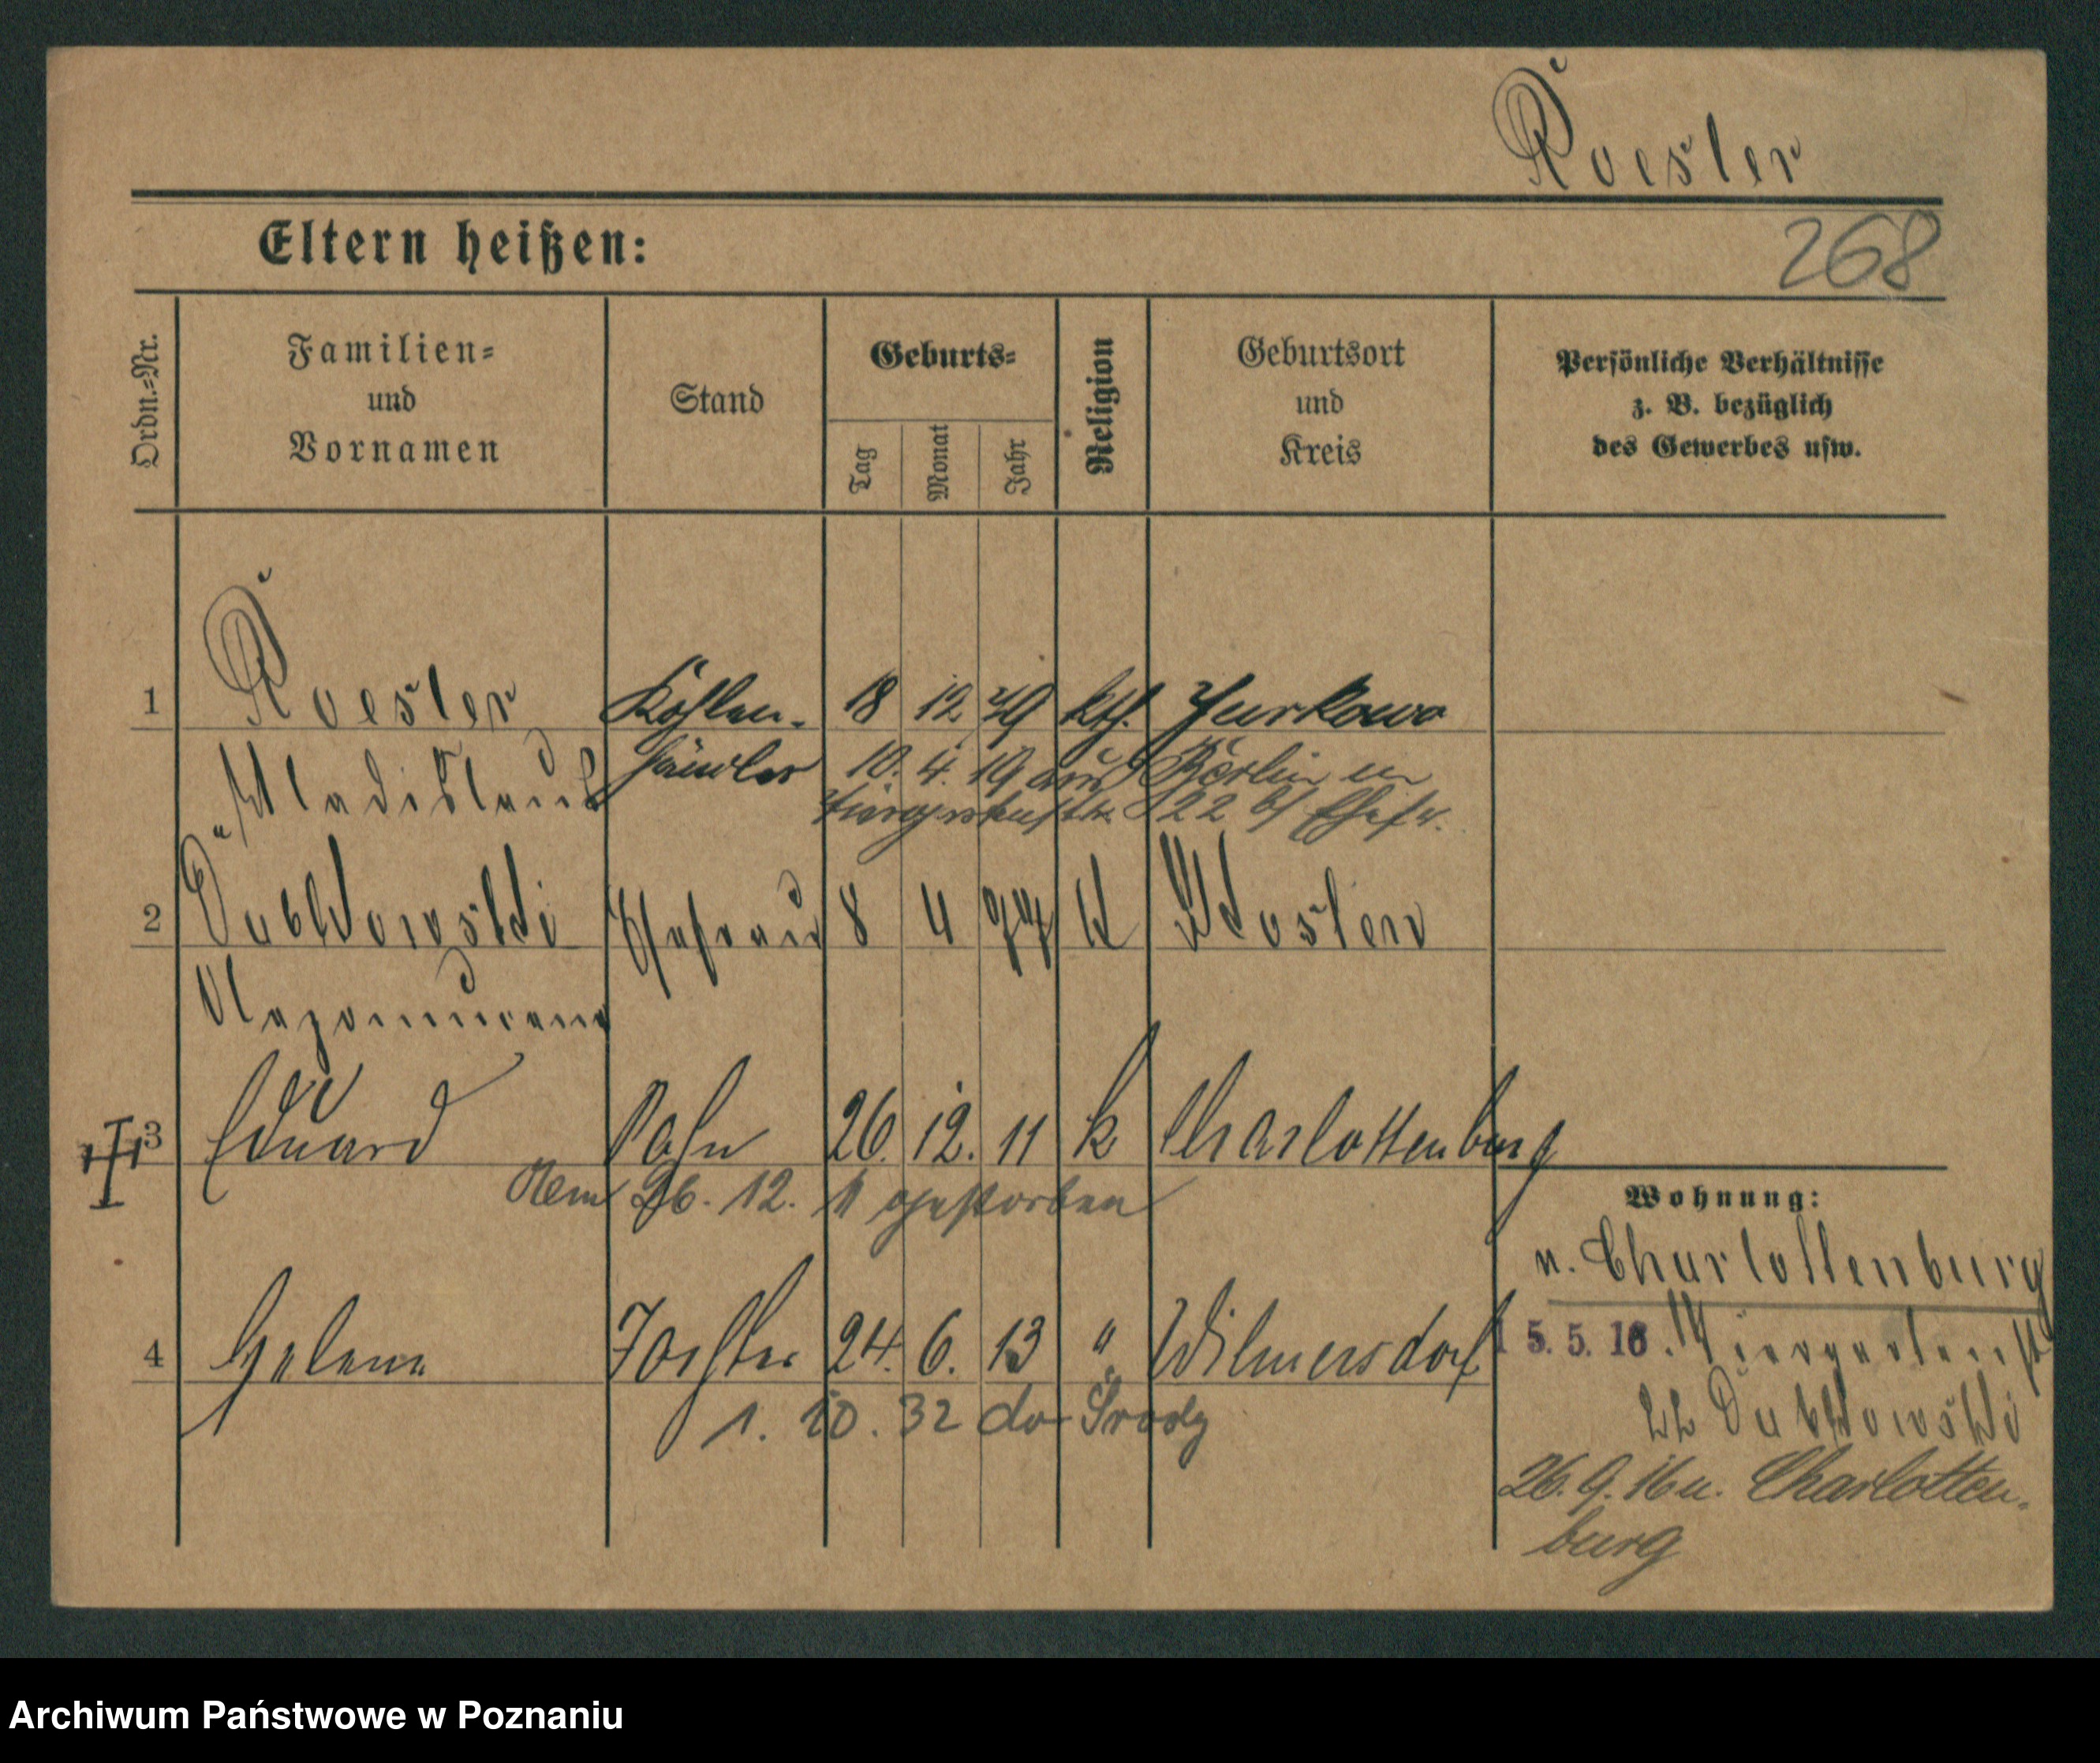 Roesler
Eltern heißen:
268
Ordn.=Nr.
Familien=
und
Vornamen
Stand
Geburts=
Tag
Monat
Jahr
Religion
Geburtsort
und
Kreis
Persönliche Verhältnisse
z. B. bezüglich
des Gewerbes usw.
1 Roesler Kohlen- 18 12 79 kth. Jurkowo
Wladislaus händler 10. 4. 19 aus Berlin
22 b/ Ehefr.
2 Dubkowski Ehefrau 8 4 77 k Kosten
3 Eduard Sohn 26. 12. 11 k Charlottenburg
26. 12. 11 gestorben
Wohnung:
n. Charlottenburg
4 Helene Tochter 24. 6. 13 " Wilmersdorf
15. 5. 16. Tiergartenstr
1. 10. 32 do Środy
22 Dubkowski
26. 9. 16 n. Charlotten-
burg
Archiwum Państwowe w Poznaniu